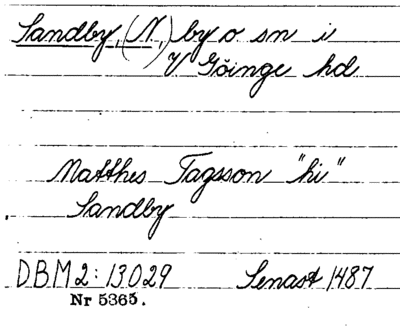 Sandby, (N,) by o sn i
V Göinge hd
Matthes Tagsson "hi"
Sandby
DBM 2:13029 Senast 1487
Nr 5365.